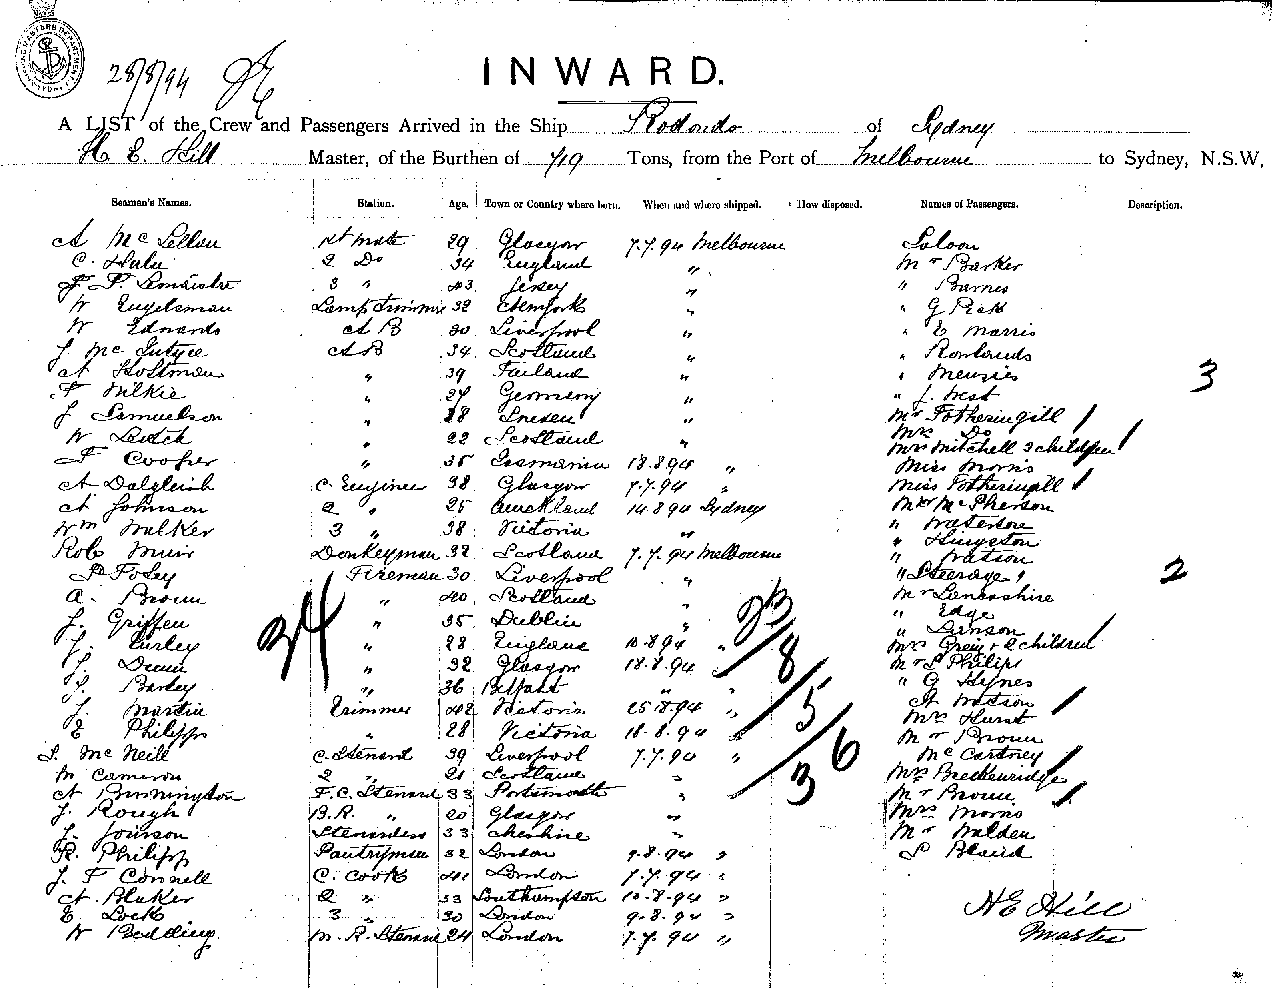 28/8/94
INWARD.
A LIST of the Crew and Passengers Arrived in the Ship Rodondo of Sydney
H. E. Hill Master, of the Burthen of 719 Tons, from the Port of Melbourne to Sydney, N.S.W.
Seamen's Names. Station. Age. Town or Country where born. When and where shipped. How disposed. Names of Passengers. Description.
A McLellan 1st Mate 29 Glasgow 7.7.94 Melbourne Saloon
C. 2 Do 34 England " Mr Barker
3 " 43 Jersey " " Barnes
W Engelsman Lamp Trimmer 32 " " G Peck
W Edwards A B 30 Liverpool " " E Morris
J. McIntyre A B 34 Scotland " " Rowlands
A Holtman " 39 " " Menzies
F Wilkie " 27 Germany " " J. West
J Samuelson " 28 " Mr Fotheringill /
W Leitch " 22 Scotland " Mrs Do
F Cooper " 35 Tasmania 18.8.94 " Mrs Mitchell 2 children /
Miss Morris
A Dalgleish C. Engineer 38 Glasgow 7.7.94 " Miss Fotheringall /
A Johnson 2 " 25 Auckland 14.8.94 Sydney Mr McPherson
Wm Walker 3 " 38 Victoria " " Waterson
" Kingston
Rob Muir Donkeyman 32 Scotland 7.7.94 Melbourne " Watson
P Foley Fireman 30 Liverpool " "Steerage"
A. Brown " 40 Scotland " Mr Lancashire
J. Griffen " 35 Dublin " " Edge
" Lawson
J. Curley " 28 England 10.8.94 " Mrs Grey & 2 children /
J. Dunn " 32 Glasgow 18.8.94 " Mr S Philips
J. Barley " 36 Belfast " " " G Hynes
J. Martin Trimmer 42 Victoria " A Watson
Mrs Hurst /
E Philipps " 28 Victoria 18.8.94 " Mr Brown
J. McNeill C. Steward 39 Liverpool 7.7.94 " McCartney /
M Cameron 2 " 21 Scotland " Mrs Breckenridge
A Bunnington F.C. Steward 33 Portsmouth " Mr Brown /
J. Rough B.R. " 20 Glasgow " Mrs Morris
J. Johnson Stewardess 33 Cheshire " Mr Walden
R. Philipp Pantryman 32 London 9.8.94 " S Bland
J. F Connell C. Cook 41 London 7.7.94 "
A. Blaker 2 " 33 Southampton 10.8.94 "
E Lock 3 " 30 London 9.8.94 "
W Bedding M. R. Steward 24 London 7.7.94 "
3
2
34
23/8/5/6
3
H E Hill
Master